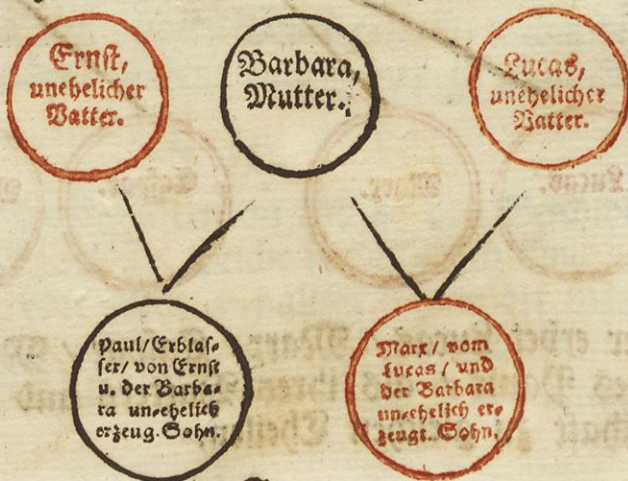 Ernst,
unehelicher
Vatter.
Barbara,
Mutter.
Lucas,
unehelicher
Vatter.
Paul/Erblas-
ser/ von Ernst
u. der Barba-
ra un-ehelich
erzeug. Sohn.
Marx/ vom
Lucas/ und
der Barbara
un-ehelich er-
zeugt. Sohn.